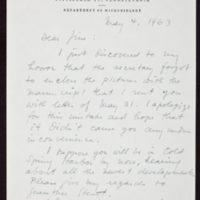 DEPARTMENT OF MICROBIOLOGY
May 4, 1963
Dear Jim:
I just discovered to my
horror that the secretary forgot
to enclose the pictures with the
manuscript that I sent you
with letter of May 21. I apologize
for this mistake and hope that
it didn't cause you any undue
inconvenience.
I suppose you will be in Cold
Spring Harbor by now, hearing
about all the newest developments.
Please give my regards to